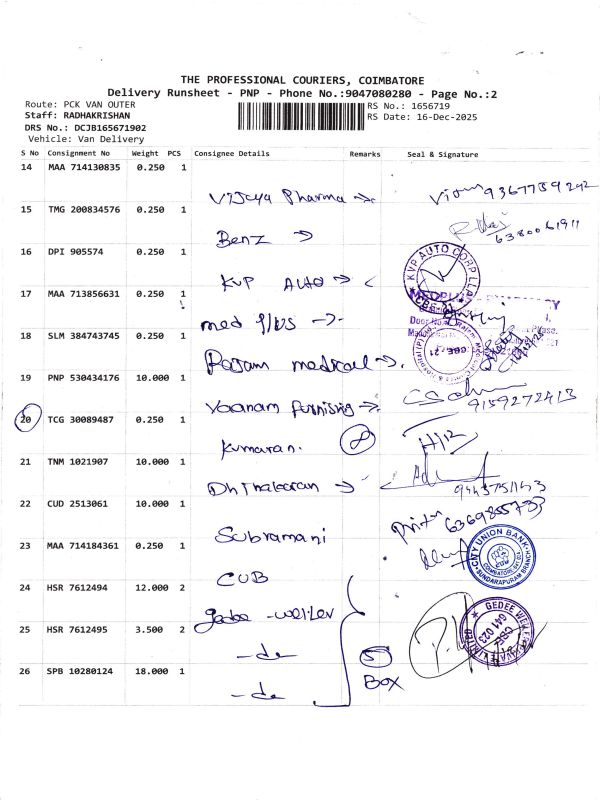 THE PROFESSIONAL COURIERS, COIMBATORE
Delivery Runsheet - PNP - Phone No.:9047080280 - Page No.:2
Route: PCK VAN OUTER
RS No.: 1656719
Staff: RADHAKRISHAN
RS Date: 16-Dec-2025
DRS No.: DCJB165671902
Vehicle: Van Delivery
S No Consignment No Weight PCS Consignee Details Remarks Seal & Signature
14 MAA 714130835 0.250 1
Vijaya Pharma
15 TMG 200834576 0.250 1
Benz 6380061911
16 DPI 905574 0.250 1
KVP AUTO
KVP AUTO CORP
17 MAA 713856631 0.250 1
med plus
18 SLM 384743745 0.250 1
Rajam medical
CBE-21
19 PNP 530434176 10.000 1
Vaanam furnishing 9159272413
20 TCG 30089487 0.250 1
Kumaran. 8
21 TNM 1021907 10.000 1
22 CUD 2513061 10.000 1
Subramani
23 MAA 714184361 0.250 1
CUB
CITY UNION BANK
SUNDARAPURAM BRANCH
24 HSR 7612494 12.000 2
gedee - weiler
GEDEE WEILER
641 023
25 HSR 7612495 3.500 2
- do 5
Box
26 SPB 10280124 18.000 1
- do